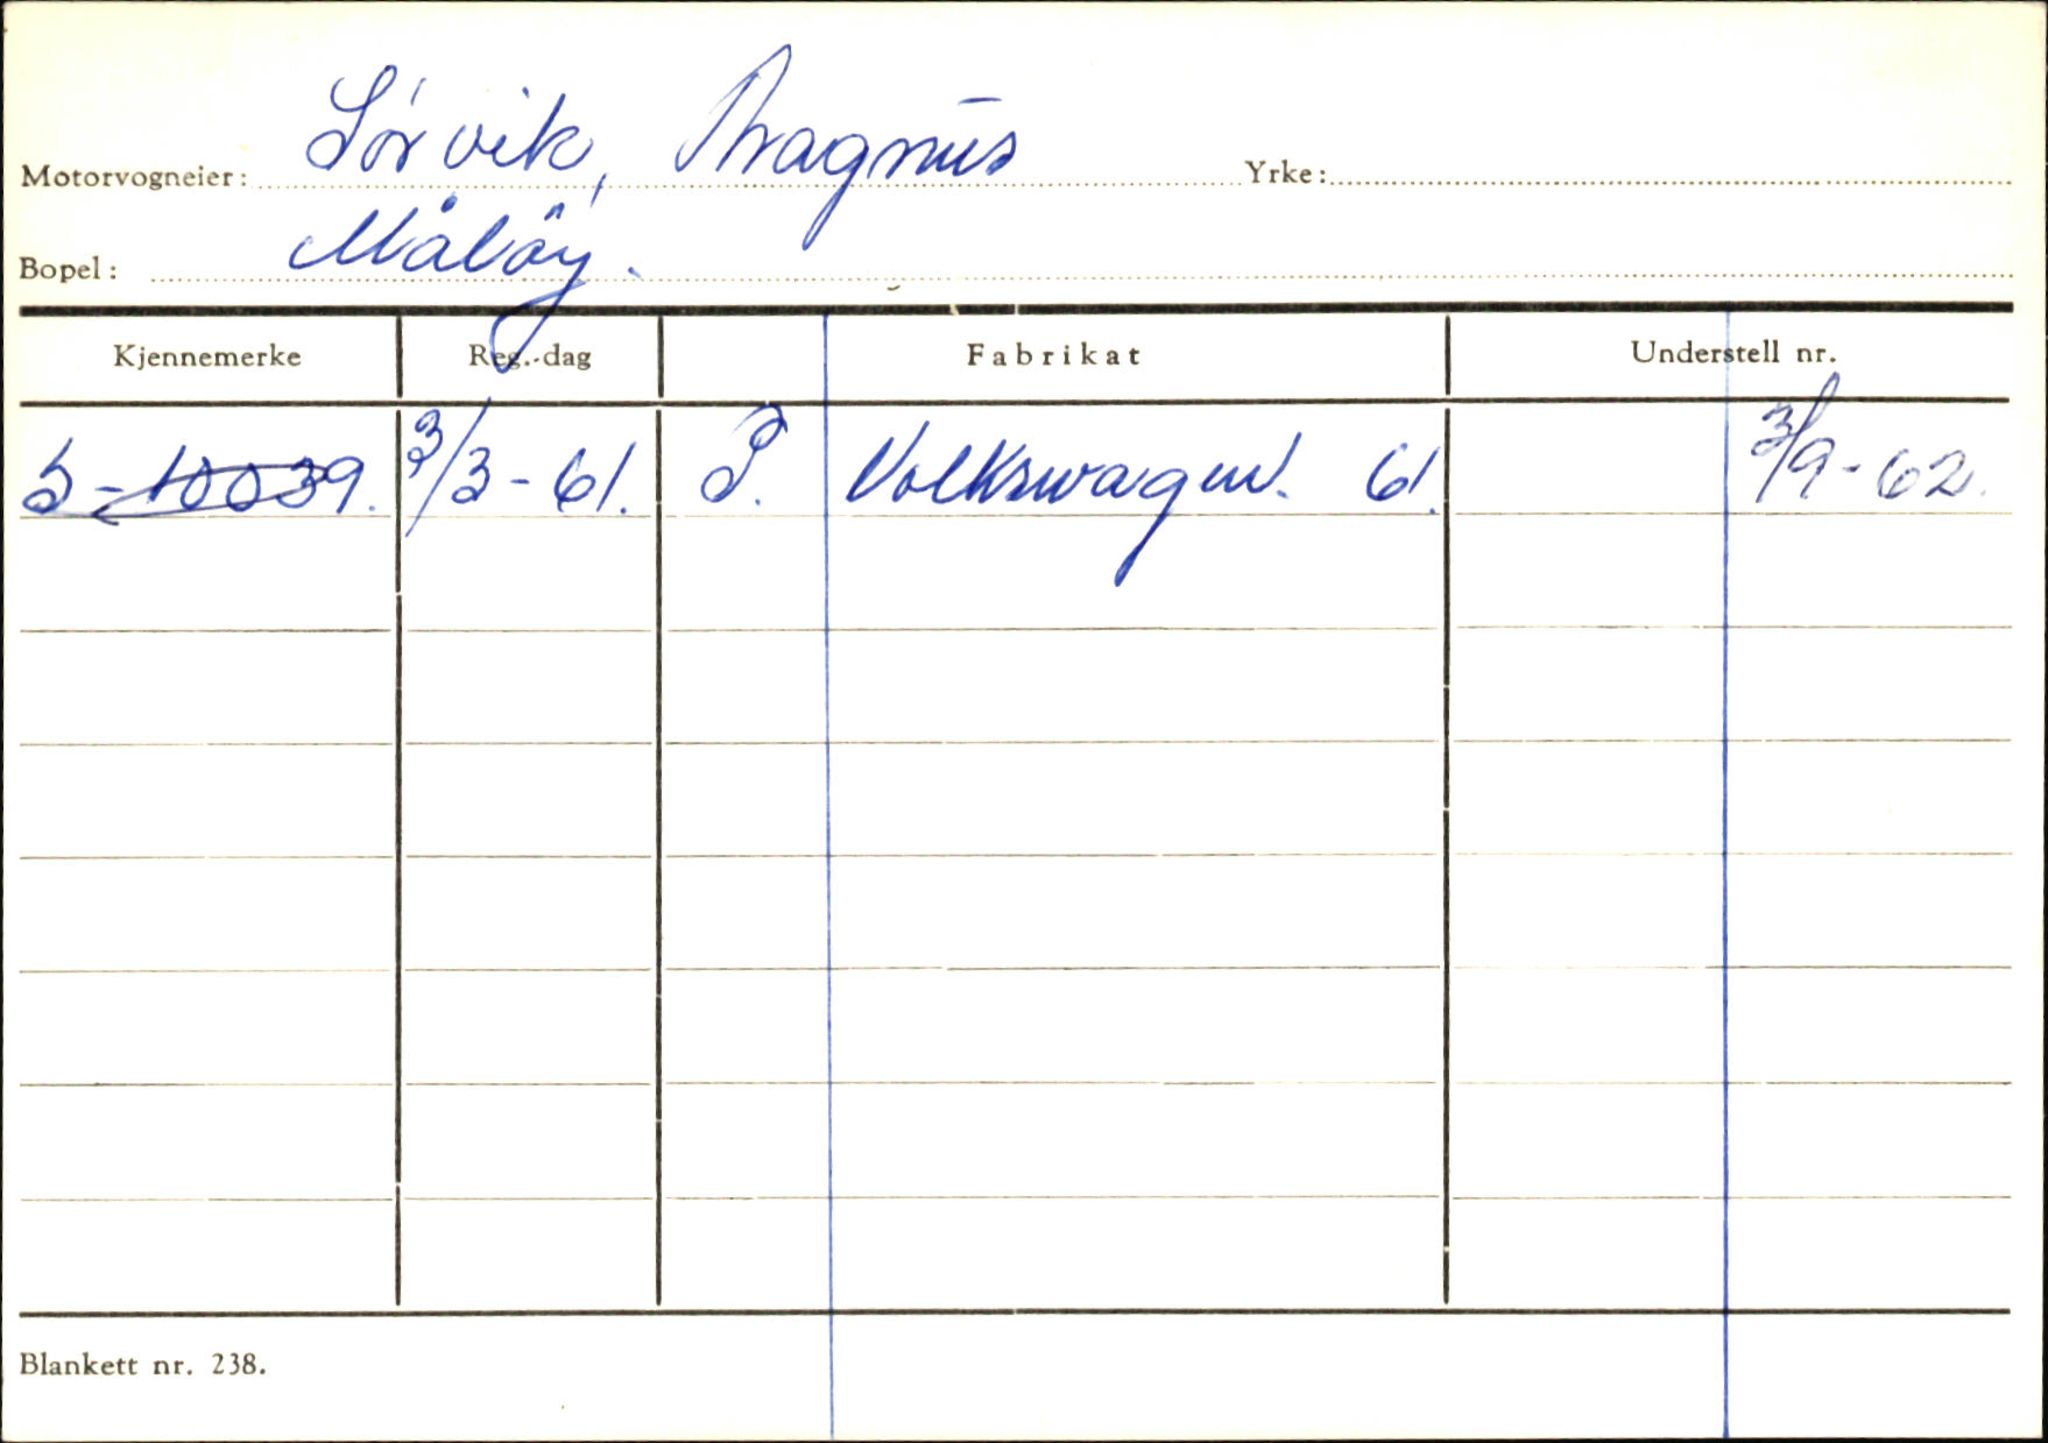 Motorvogneier: Sørvik, Magnus Yrke:
Bopel: Måløy.
Kjennemerke Reg.-dag Fabrikat Understell nr.
S-10039. 3/3-61. P. Volkswagen. 61. 3/9-62.
Blankett nr. 238.